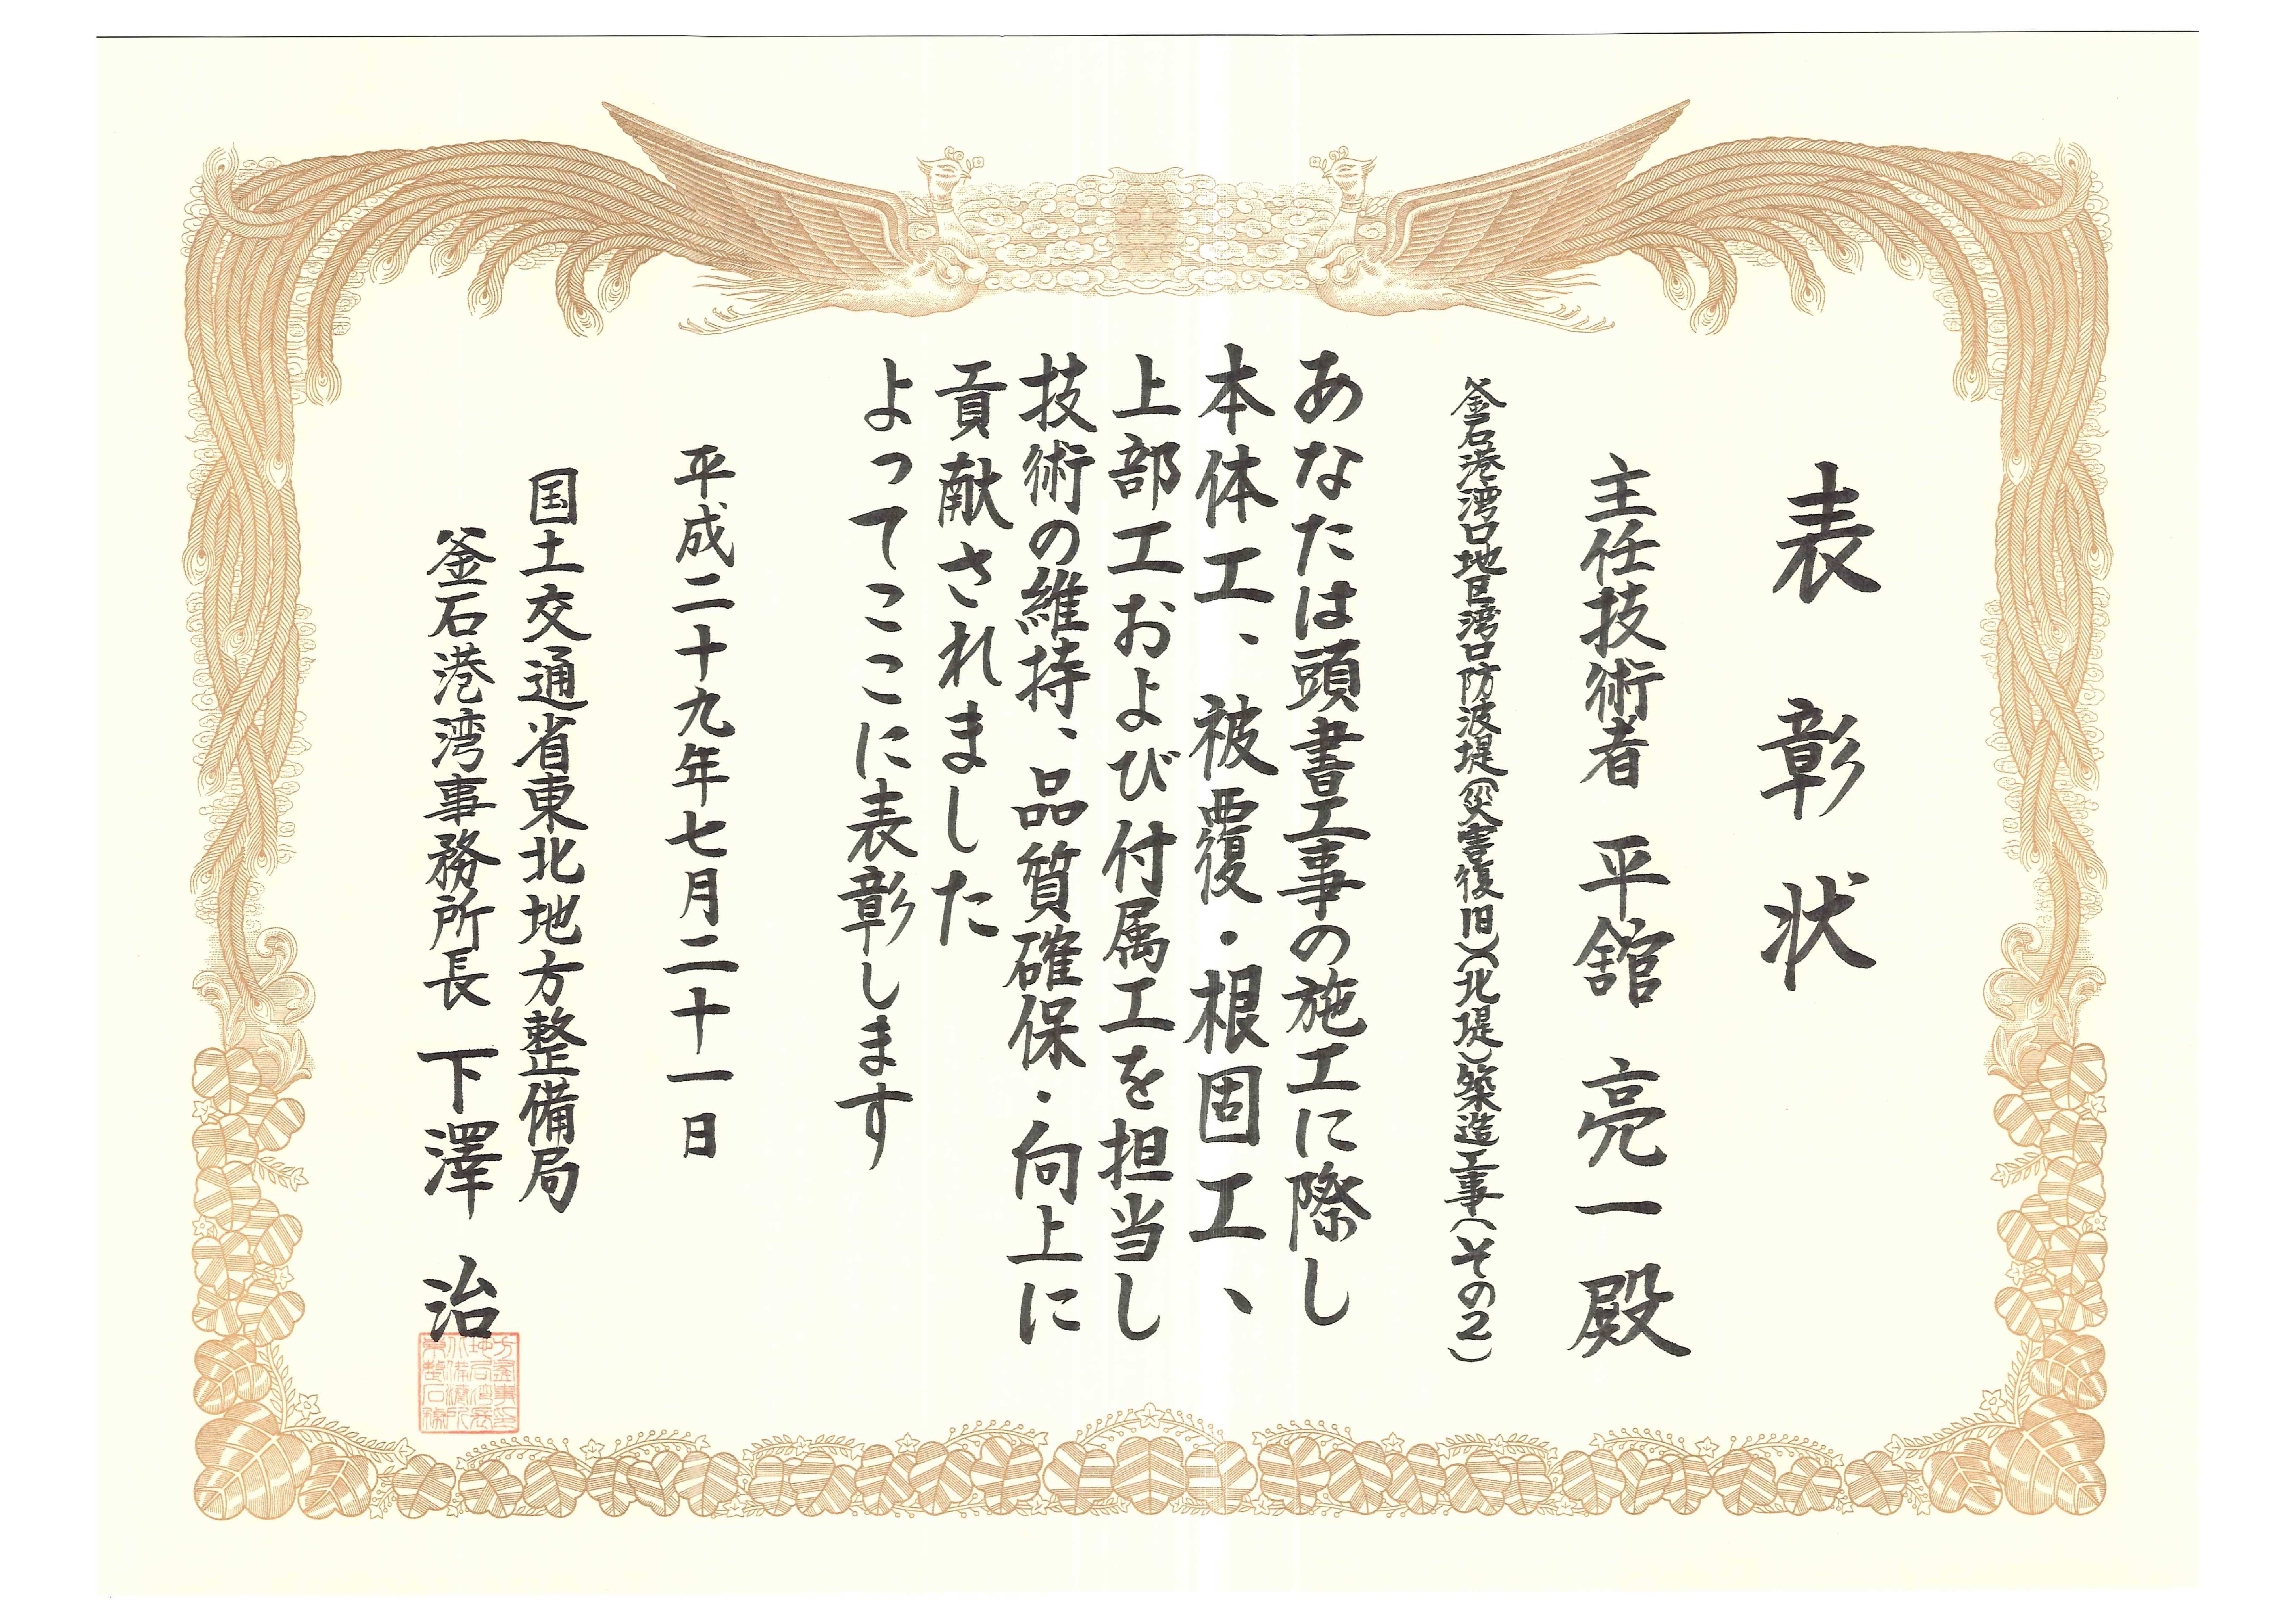 表彰状
主任技術者 平舘 亮一 殿
釜石港湾口地区湾口防波堤(災害復旧)(北堤)築造工事(その2)
あなたは頭書工事の施工に際し
本体工、被覆・根固工、
上部工および付属工を担当し
技術の維持、品質確保・向上に
貢献されました
よってここに表彰します
平成二十九年七月二十一日
国土交通省東北地方整備局
釜石港湾事務所長 下澤 治